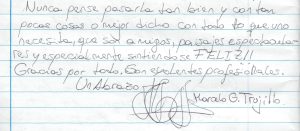 Nunca pense pasarla tan bien y con tan
pocas cosas o mejor dicho con todo lo que uno
necesita, que son amigos, paisajes espectacula-
res y especialmente sintiendose FELIZ!!
Gracias por todo. Son excelentes profesionales.
Un Abrazo
Marcelo G. Trujillo